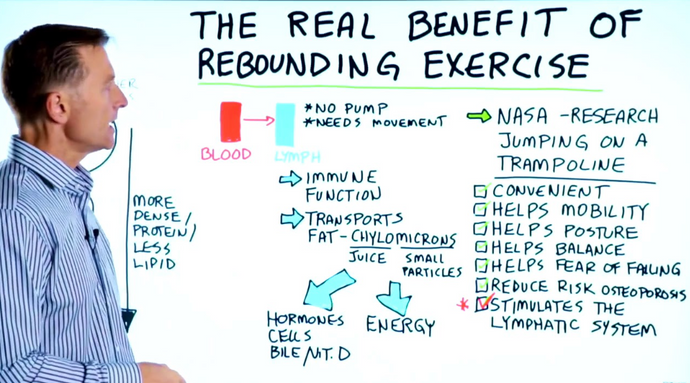 THE REAL BENEFIT OF
REBOUNDING EXERCISE
*NO PUMP
*NEEDS MOVEMENT
BLOOD
LYMPH
IMMUNE
FUNCTION
TRANSPORTS
FAT-CHYLOMICRONS
JUICE SMALL
PARTICLES
HORMONES
CELLS
BILE/VIT. D
ENERGY
MORE
DENSE/
PROTEIN/
LESS
LIPID
NASA-RESEARCH
JUMPING ON A
TRAMPOLINE
CONVENIENT
HELPS MOBILITY
HELPS POSTURE
HELPS BALANCE
HELPS FEAR OF FALLING
REDUCE RISK OSTEOPOROSIS
*STIMULATES THE
LYMPHATIC SYSTEM